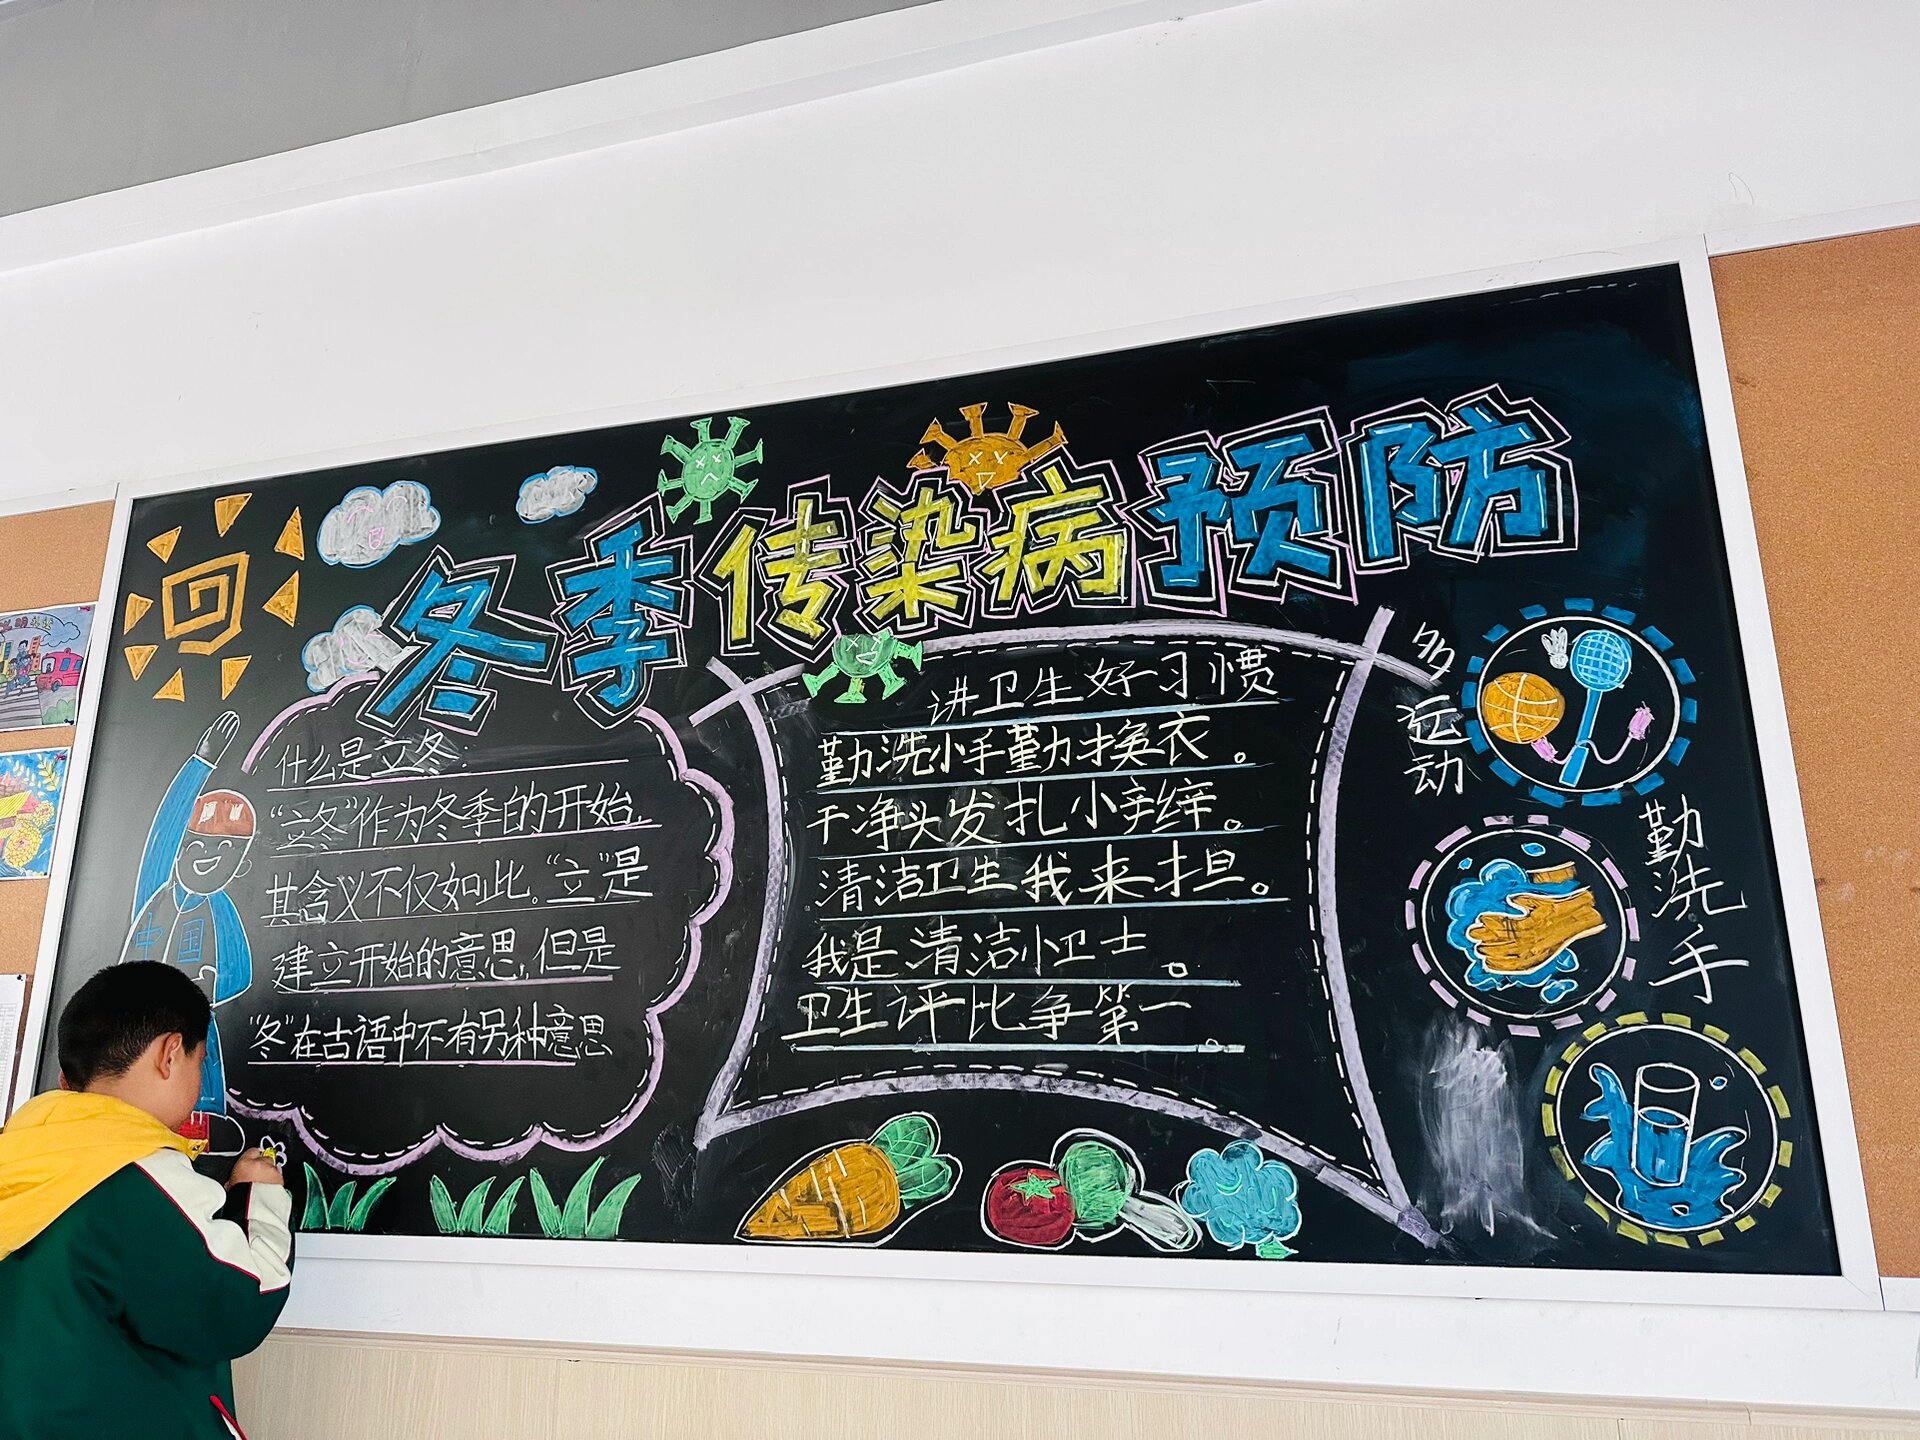 冬季传染病预防
什么是立冬:
“立冬”作为冬季的开始,
其含义不仅如此。“立”是
建立开始的意思,但是
“冬”在古语中不有另种意思
中国
讲卫生好习惯
勤洗小手勤换衣。
干净头发扎小辫。
清洁卫生我来担。
我是清洁小卫士。
卫生评比争第一。
多运动
勤洗手